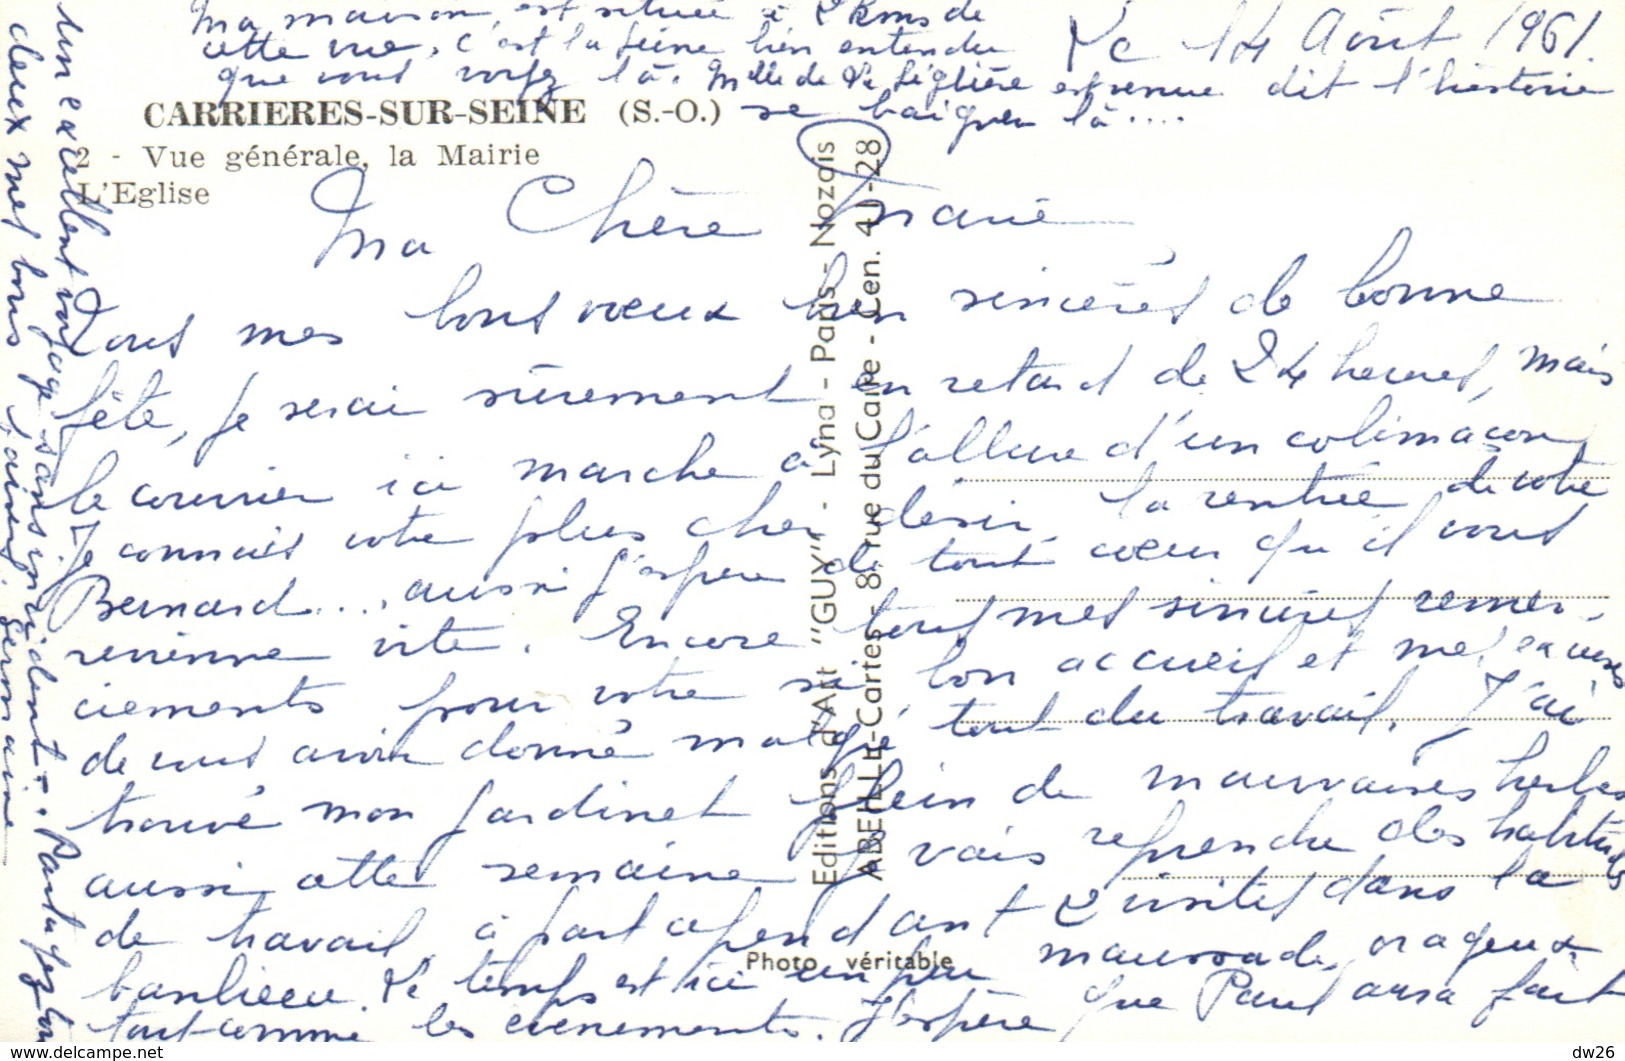 Ma maison, est située à 2 kms de
cette vue, c'est la Seine bien entendu
que vous voyez là. Melle de la est venue dit l'histoire
se baigner là....
Le 14 Août 1961.
CARRIERES-SUR-SEINE (S.-O.)
2 - Vue générale, la Mairie
L'Eglise
Ma Chère Marie
Tous mes bons vœux bien sincères de bonne
fête, je serai sûrement en retard de 24 heures, mais
le courrier ici marche à l'allure d'un colimaçon
Je connais votre plus cher désir, la rentrée de votre
Bernard..., aussi j'espère de tout cœur qu'il vous
revienne vite. Encore tous mes sincères remer-
ciements pour votre si bon accueil et mes excuses
de vous avoir donné malgré tout du travail. J'ai
trouvé mon jardinet plein de mauvaises herbes
aussi cette semaine je vais reprendre des habitudes
de travail, à part cependant 2 visites dans la
banlieue. Le temps est ici un peu maussade, orageux
tout comme les évènements. J'espère que Paul aura fait
un excellent voyage sans incident. Partagez tous
deux mes bons baisers. Germaine
Editions d'Art "GUY" - Lyna - Paris - Nozais
ABEILLE-Cartes - 8, rue du Caire - Cen. 41-28
Photo véritable
dw26